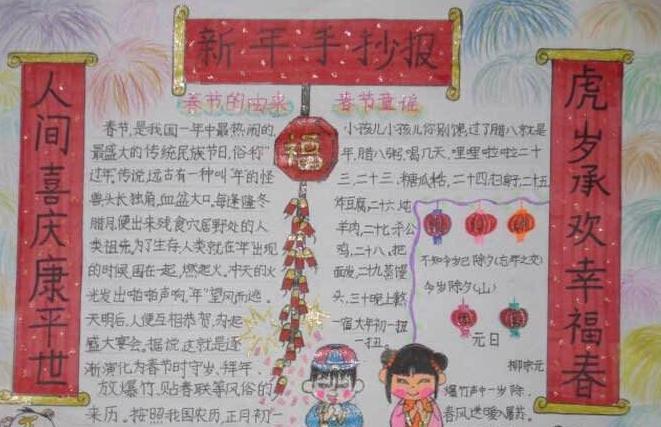 新年手抄报
人间喜庆康平世
虎岁承欢幸福春
春节的由来
春节,是我国一年中最热闹的,
最盛大的传统民族节日,俗称"
过年"传说,远古有一种叫"年"的怪
兽头长独角,血盆大口,每逢隆冬
腊月,便出来残食穴居野处的人
类祖先,为了生存,人类就在"年"出现
的时候,围在一起,燃起火,冲天的火
光发出啪啪声响,"年"望风而逃。
天明后,人便互相恭贺,
盛大宴会。据说这就是逐
渐演化为春节时守岁、拜年、
放爆竹、贴春联等风俗的
来历。按照我国农历,正月初一
福
春节童谣
小孩儿小孩儿你别馋,过了腊八就是
年,腊八粥,喝几天,哩哩啦啦二十
三,二十三,糖瓜粘,二十四,扫房子,二十五
炸豆腐,二十六,炖
羊肉,二十七,杀公
鸡,二十八,把
面发,二十九,蒸馒
头,三十晚上熬
一宿大年初一扭
一扭。
不知今岁已除夕(忘年之交)
今岁除夕(山)
元日
柳宗元
爆竹声中一岁除,
春风送暖入屠苏。